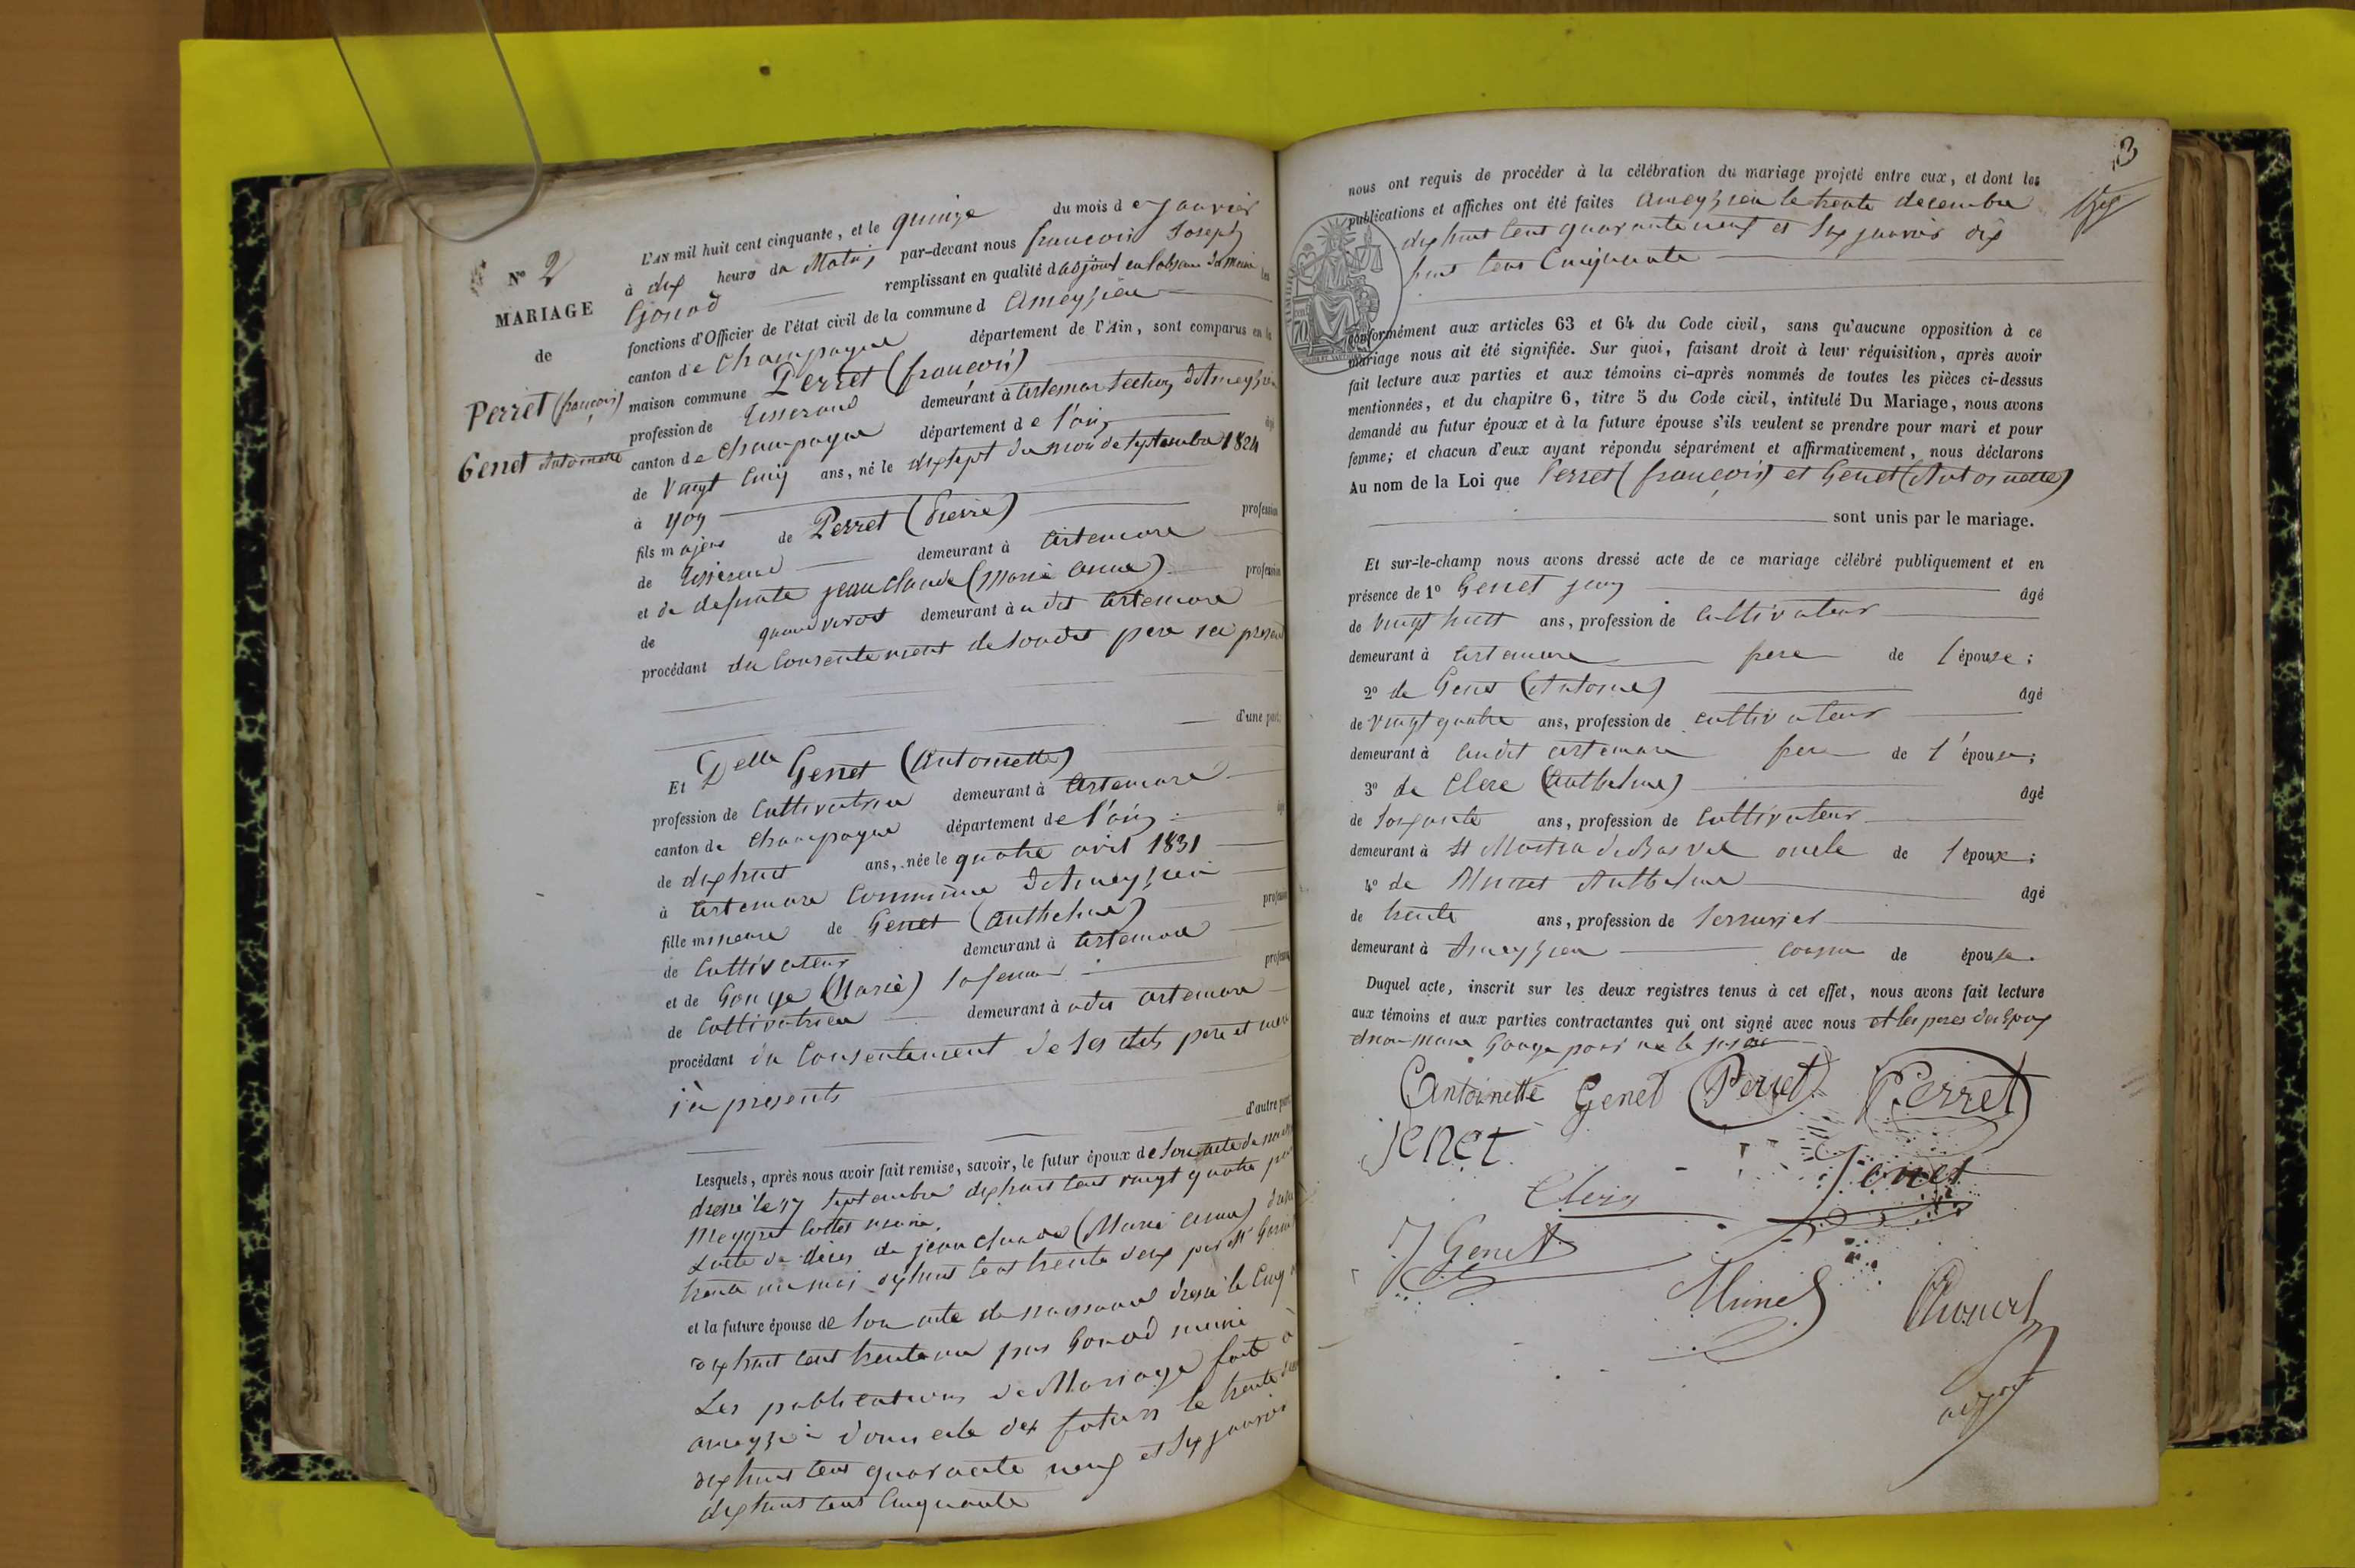 N° 2
MARIAGE
de
Perret (françois)
Genet Antoinette
L'AN mil huit cent cinquante, et le quinze du mois de janvier
à dix heures du Matin par-devant nous françois Joseph
Gonod remplissant en qualité d'adjoint en l'absence du Maire les
fonctions d'Officier de l'état civil de la commune d Ameyzieu
canton de Champagne département de l'Ain, sont comparus en la
maison commune Perret (françois)
profession de tisserand demeurant à Artemare section d'Ameyzieu
canton de Champagne département de l'ain âgé
de vingt cinq ans, né le dix sept du mois de septembre 1824
à yon
fils majeur de Perret (Pierre) profession
de tisserand demeurant à Artemare
et de defunte jean Claude (Marie anne) profession
de quand vivait demeurant à udit Artemare
procédant du consentement de son dit pere ici présent
d'une part;
Et Delle Genet (Antoinette)
profession de Cultivatrice demeurant à Artemare
canton de Champagne département de l'ain
de dix huit ans, née le quatre avril 1831
à Artemare Commune d'Ameyzieu
fille mineure de Genet (Anthelme) profession
de Cultivateur demeurant à Artemare
et de Gonge (Marie) sa femme profession
de Cultivatrice demeurant à udit Artemare
procédant du consentement de ses dits pere et mere
ici présents
d'autre part.
Lesquels, après nous avoir fait remise, savoir, le futur époux de son acte de
dressé le 17 septembre dix huit cent vingt quatre par
maire.
L'acte de décès de jean Claude (Marie anne)
trente un mai dix huit cent trente deux par Mr
et la future épouse de son acte de naissance dressé le cinq
dix huit cent trente un par Gonod maire
Les publications de Mariage fait à
domicile des futurs le trente
dix huit cent quarante neuf et six janvier
dix huit cent cinquante
3
nous ont requis de procéder à la célébration du mariage projeté entre eux, et dont les
publications et affiches ont été faites Ameyzieu le trente decembre
dix huit cent quarante neuf et six janvier dix
huit cent Cinquante
conformément aux articles 63 et 64 du Code civil, sans qu'aucune opposition à ce
mariage nous ait été signifiée. Sur quoi, faisant droit à leur réquisition, après avoir
fait lecture aux parties et aux témoins ci-après nommés de toutes les pièces ci-dessus
mentionnées, et du chapitre 6, titre 5 du Code civil, intitulé Du Mariage, nous avons
demandé au futur époux et à la future épouse s'ils veulent se prendre pour mari et pour
femme; et chacun d'eux ayant répondu séparément et affirmativement, nous déclarons
Au nom de la Loi que Perret (françois) et Genet (Antoinette)
sont unis par le mariage.
Et sur-le-champ nous avons dressé acte de ce mariage célébré publiquement et en
présence de 1° Genet âgé
de vingt huit ans, profession de Cultivateur
demeurant à Artemare frere de l'épouse;
2° de Genet (Antoine) âgé
de vingt quatre ans, profession de cultivateur
demeurant à audit artemare frere de l'épouse;
3° de Clerc (Anthelme) âgé
de soixante ans, profession de Cultivateur
demeurant à St Martin de Bavel oncle de l'époux;
4° de Munet Anthelme âgé
de trente ans, profession de Serrurier
demeurant à Ameyzieu cousin de épouse.
Duquel acte, inscrit sur les deux registres tenus à cet effet, nous avons fait lecture
aux témoins et aux parties contractantes qui ont signé avec nous et les peres des Epoux
et non marie Gonge pour ne le savoir
Antoinette Genet Perret Perret
jenet
Clerc Jenet
J Genet
Munet Gonod
adjoint